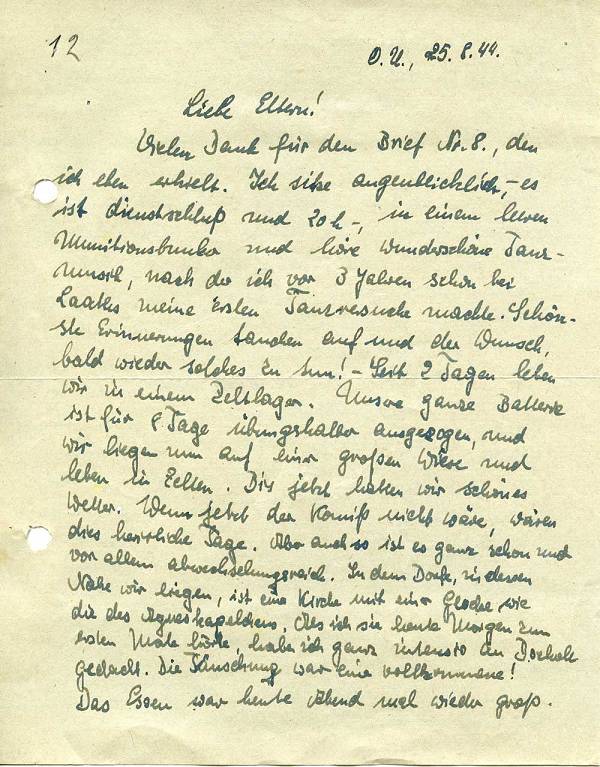 12
O.U., 25.8.44.
Liebe Eltern!
Vielen Dank für den Brief Nr. 8., den
ich eben erhielt. Ich sitze augenblicklich, – es
ist Dienstschluß und 20 h –, in einem leeren
Munitionsbunker und höre wunderschöne Tanz-
musik, nach der ich vor 3 Jahren schon bei
meine ersten Tanzversuche machte. Schön-
ste Erinnerungen tauchen auf und der Wunsch,
bald wieder solches zu tun! – Seit 2 Tagen leben
wir in einem Zeltlager. Unsere ganze Batterie
ist für 8 Tage übungshalber ausgezogen, und
wir liegen nun auf einer großen Wiese und
leben in Zelten. Bis jetzt hatten wir schönes
Wetter. Wenn jetzt der Komiß nicht wäre, wären
dies herrliche Tage. Aber auch so ist es ganz schön und
vor allem abwechselungsreich. In dem Dorfe, in dessen
Nähe wir liegen, ist eine Kirche mit einer Glocke wie
die des Agneskapellchens. Als ich sie heute Morgen zum
ersten Male hörte, habe ich ganz intensiv an Bocholt
gedacht. Die Täuschung war eine vollkommene!
Das Essen war heute Abend mal wieder groß.